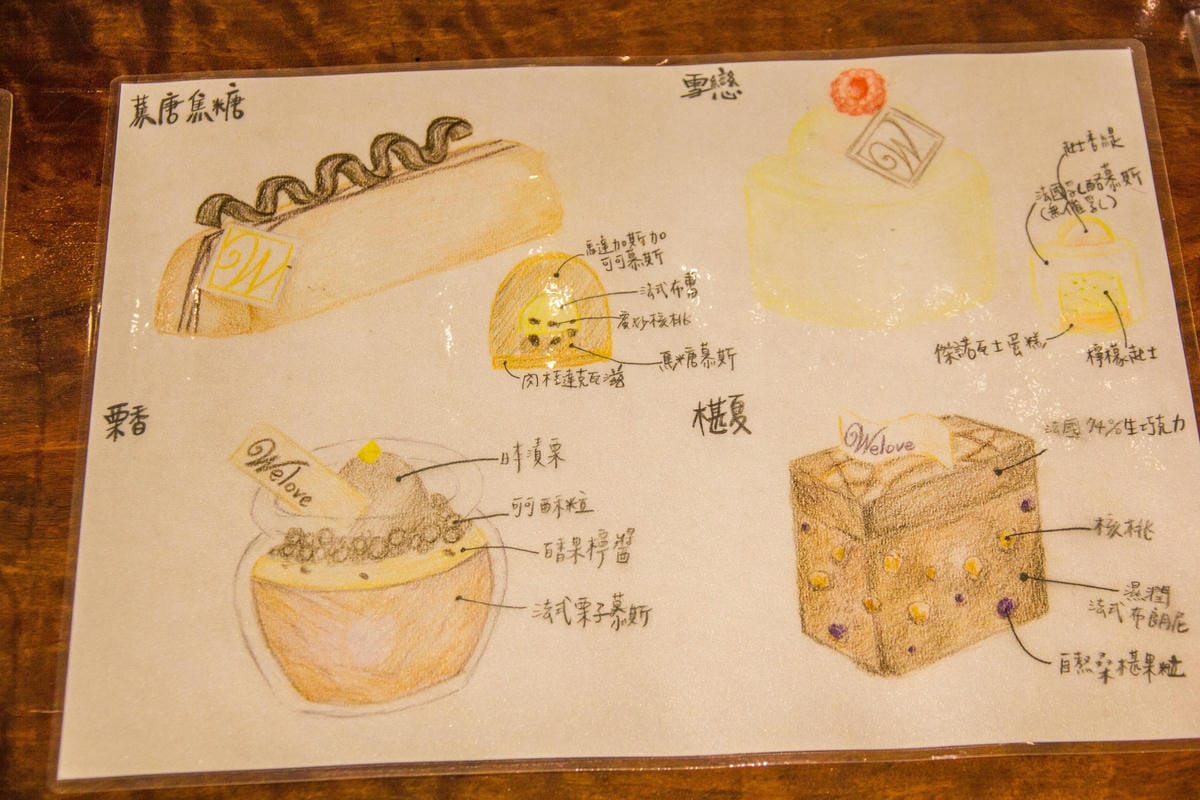 慕唐焦糖
W
馬達加斯加
可可慕斯
法式布蕾
蜜炒核桃
焦糖慕斯
肉桂達克瓦滋
雪戀
W
起士香緹
法國乳酪慕斯
(無僱乳)
傑諾瓦士蛋糕
檸檬起士
栗香
Welove
日本漬栗
可可酥粒
百香果檸醬
法式栗子慕斯
椹夏
Welove
法國74%生巧克力
核桃
濕潤
法式布朗尼
自熬桑椹果粒